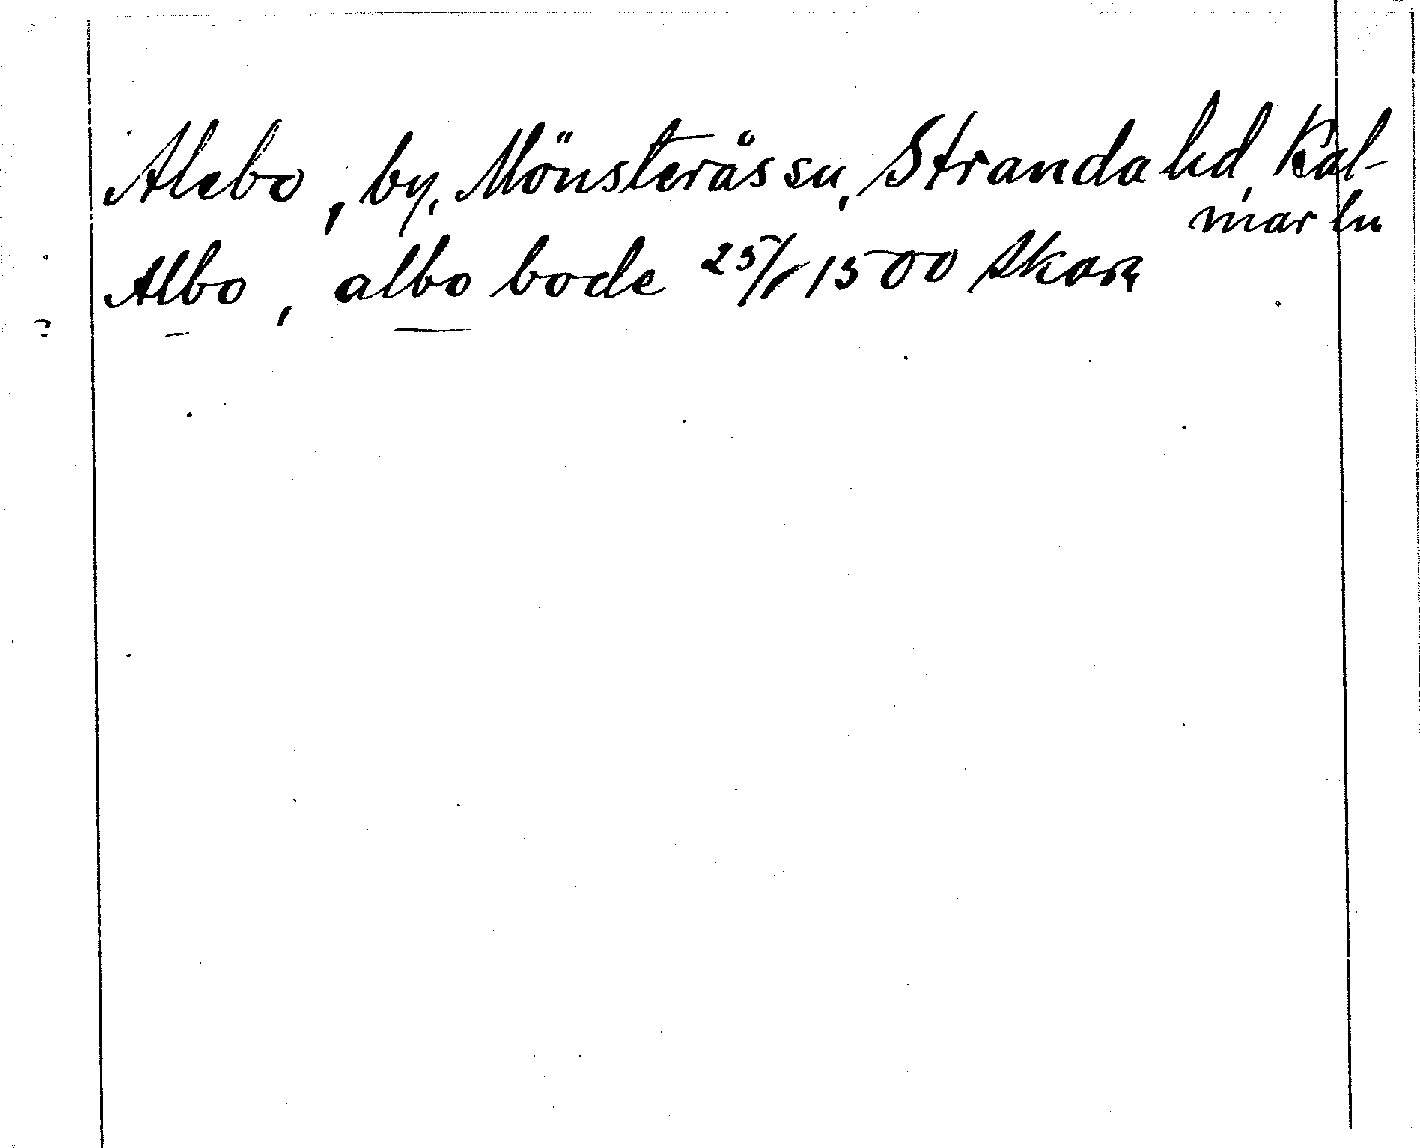 Alebo, by, Mönsterås sn, Stranda hd, Kal-
mar ln
Albo, albo bode 25/1 1500 Skok